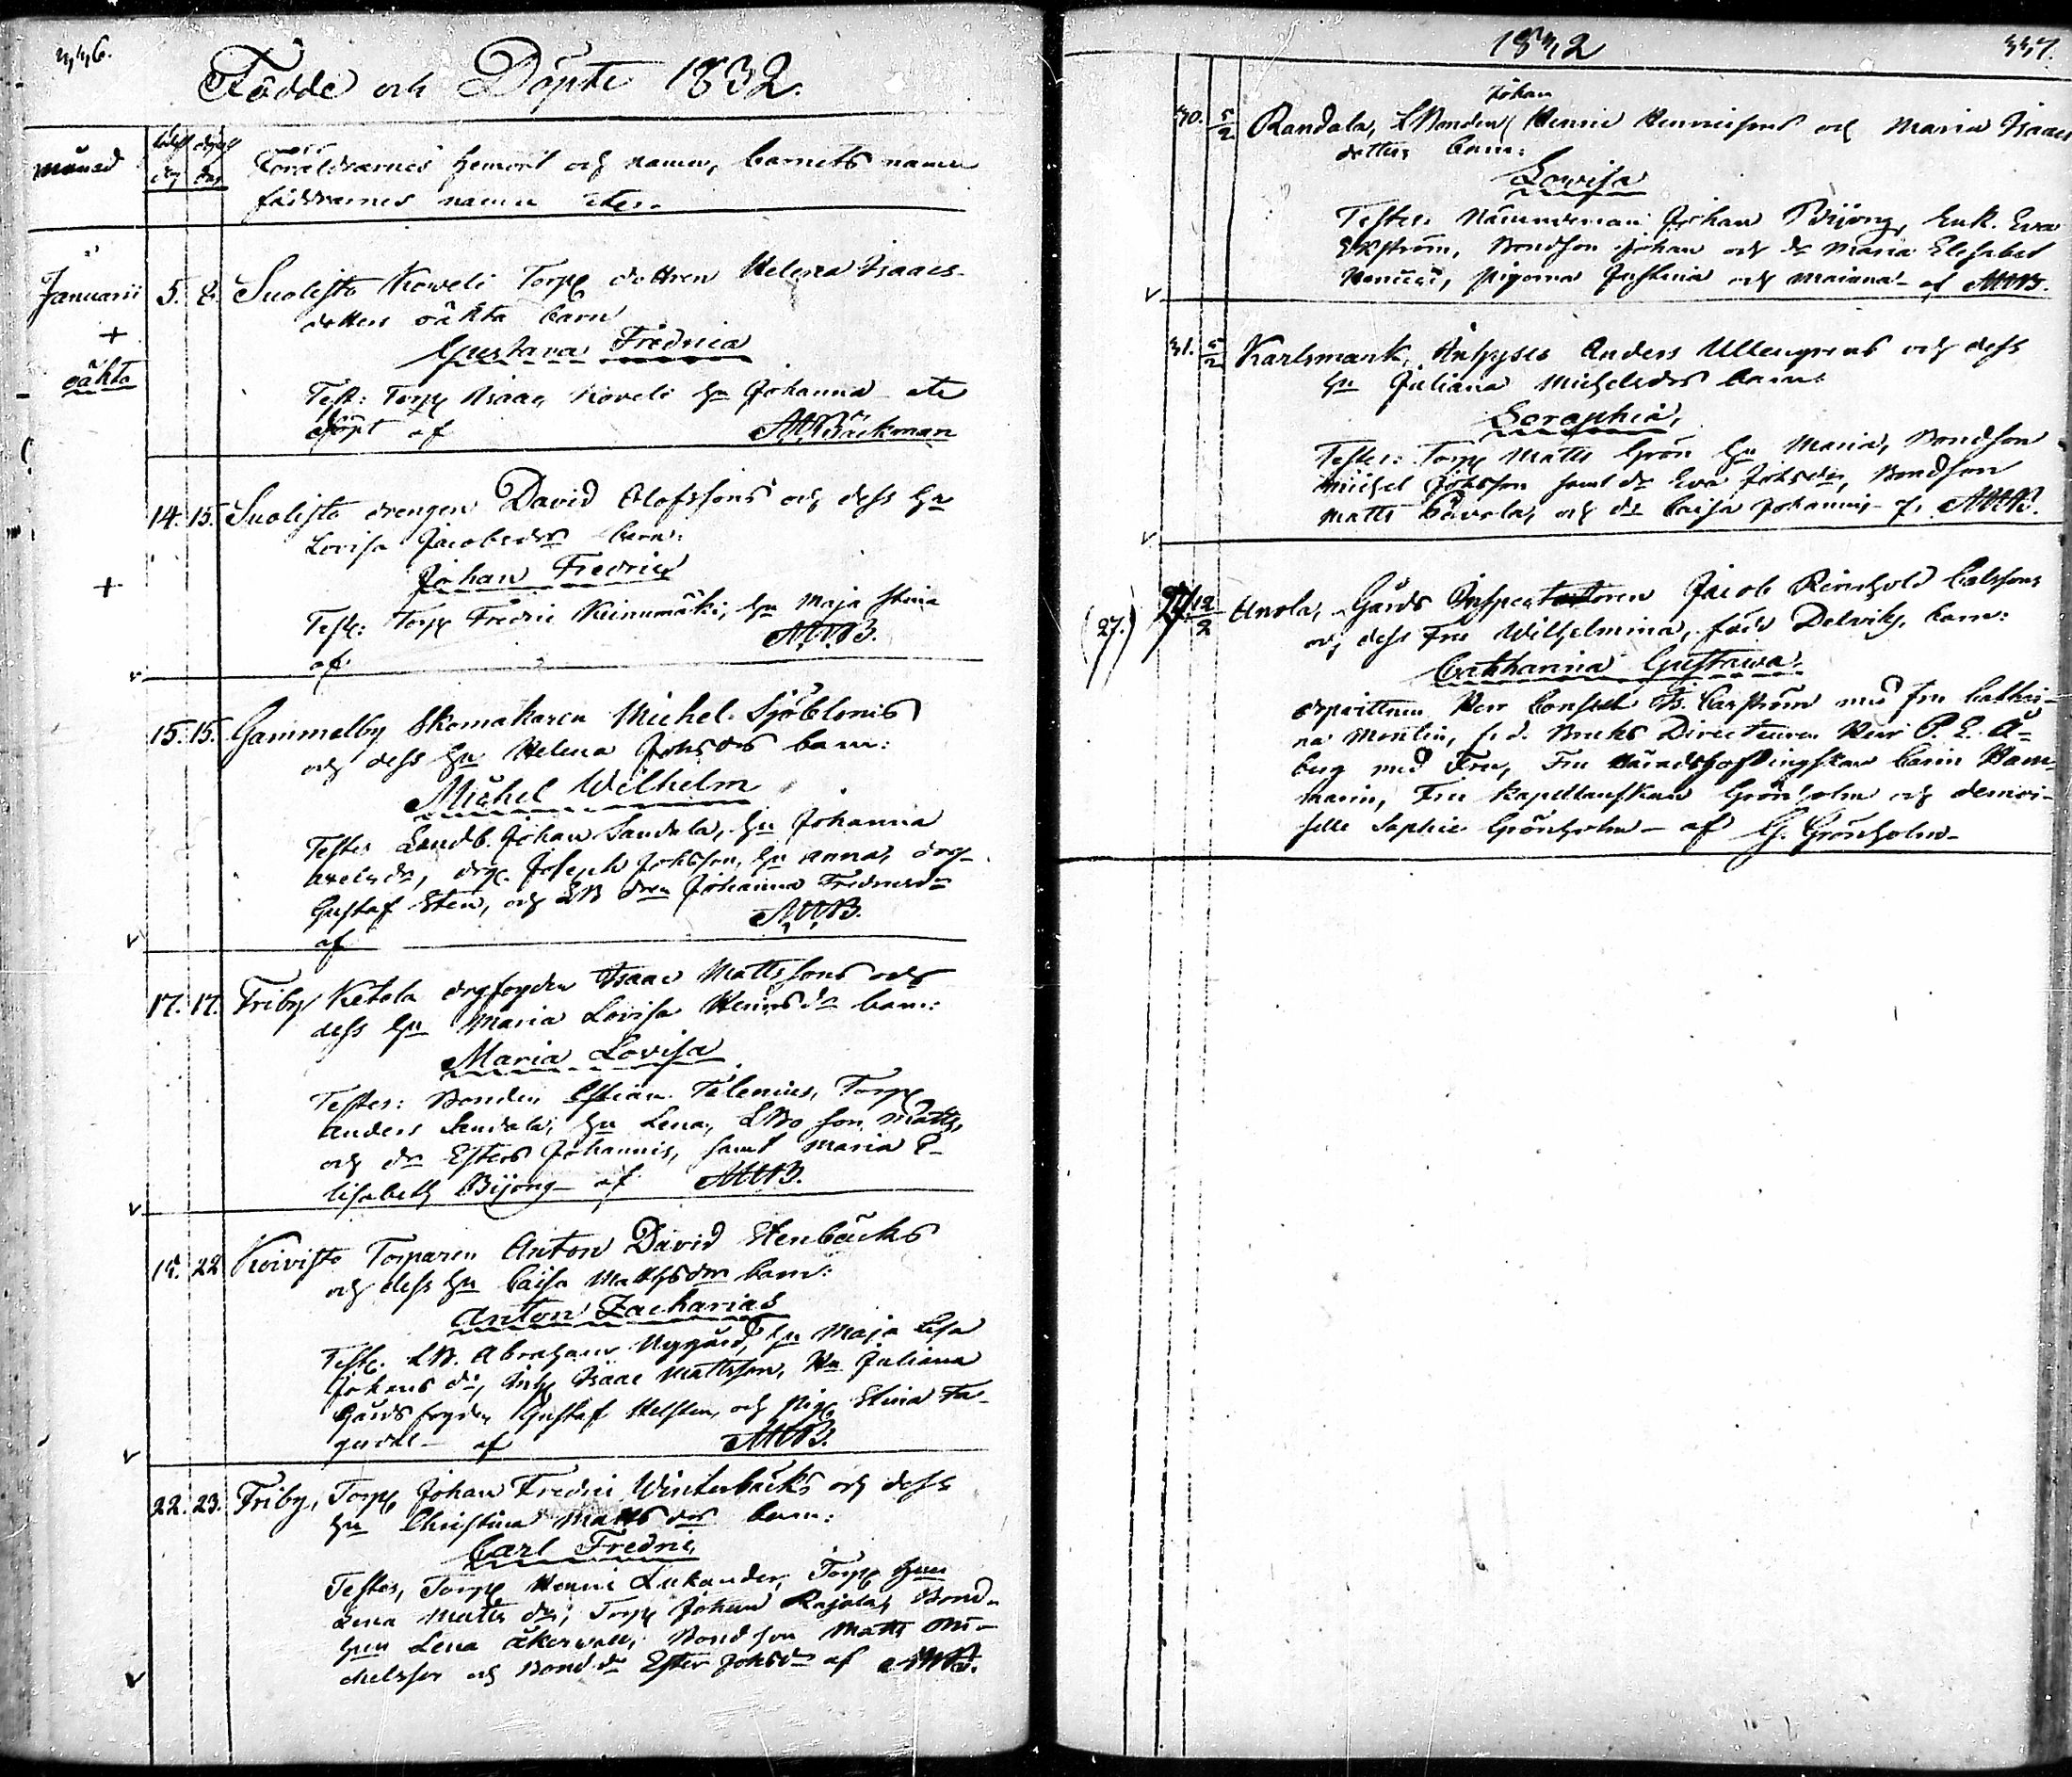 Födde och Döpte 1832.
månad
dag
Föräldrarnes hemort och namn, barnets namn
faddrarnes namn etc.
Januarii 5. 8. Suolisto Koveli Torp dottren Helena Isaacs-
+ dotters oäkta barn
oäkta Gustava Fredrica
Test: Torp Isaac Koveli hu Johanna etc
döpt af AWBäckman
14. 15. Suolisto drengen David Olofssons och dess hu
Lovisa Jacobsdrs barn:
+ Johan Fredric
Test: Torp Fredric Keinumäki, hu Maja Stina
af AWB.
15. 15. Gammelby Skomakaren Michel Sjöbloms
och dess hu Helena Johsdrs barn:
Michel Wilhelm
Testes Landb. Johan Sandela, hu Johanna
Axelsdr, drg. Joseph Johsson, hu Anna, drg
Gustaf Sten, och LB dren Johanna Fredricsdr
af AWB.
17. 17. Friby Ketola drgfogden Isaac Mattssons och
dess hu Maria Lovisa Henricsdrs barn:
Maria Lovisa
Testes: Bonden Telenius, Torp
Anders Sandela, hu Lena, LBo son Matts,
och dr Esters Johannis, samt Maria E-
lisabeth Bijong - af AWB.
15. 22 Koivisto Torparen Anton David Stenbäcks
och dess hu Caisa Mattsdrs barn:
Anton Zacharias
Test. LB. Abraham Nygård, hu Maja Lisa
Johans dr, Inh Isaac Mattsson, Hu Juliana
Gårdsfogden Gustaf Helsten, och Pig. Stina Fa-
gerdal - af AWB.
22. 23. Friby, Torp Johan Fredric Winterbäcks och dess
hu Christina Mattsdrs barn:
Carl Fredric
Testes, Torp Henric Lukander, Torp hun
Lena Matts dr, Torp Johan Rajala, Bond
hun Lena Åkerwall, Bondson Matts Mi-
chelsson och Bond dr Ester Johsdr af AWB.
1832 337.
Johan
30. 5/2 Randala, LBonden Henric Henricsons och Maria Isaacs
dotters barn:
Lovisa
Testes. Nämndeman Johan Bijong, Enk. Eva
Ekström, Bondson Johan och dr Maria Elisabet
pigorna Justina och Maiana - af AWB.
31. 5/2 Karlsmark, Inhyses Anders Ullengrens och dess
hu Juliana Michelsdrs barn:
Seraphia,
Testes: Torp Matts Grön hu Maria, Bondson
Michel Johsson samt dr Eva Johsdr, Bondson
Matts Cavola, och dr Caisa Johannis - af AWB.
(27.) 27. 12/2 Anola, Gårds Inspectoren Jacob Reinhold Carlssons
och dess Fru Wilhelmina, född Delvik, barn:
Catharina Gustawa.
dopvittnen Herr Consul B. Carström med fru Cathari-
na Moulin, f. d. Bruks Directeuren Herr P. E. Å-
berg med Fru, Fru Häradshöfdingskan Carin Ham-
marin, Fru Kapellanskan Grönholm och demoi-
selle Sophie Grönholm - af G. Grönholm -